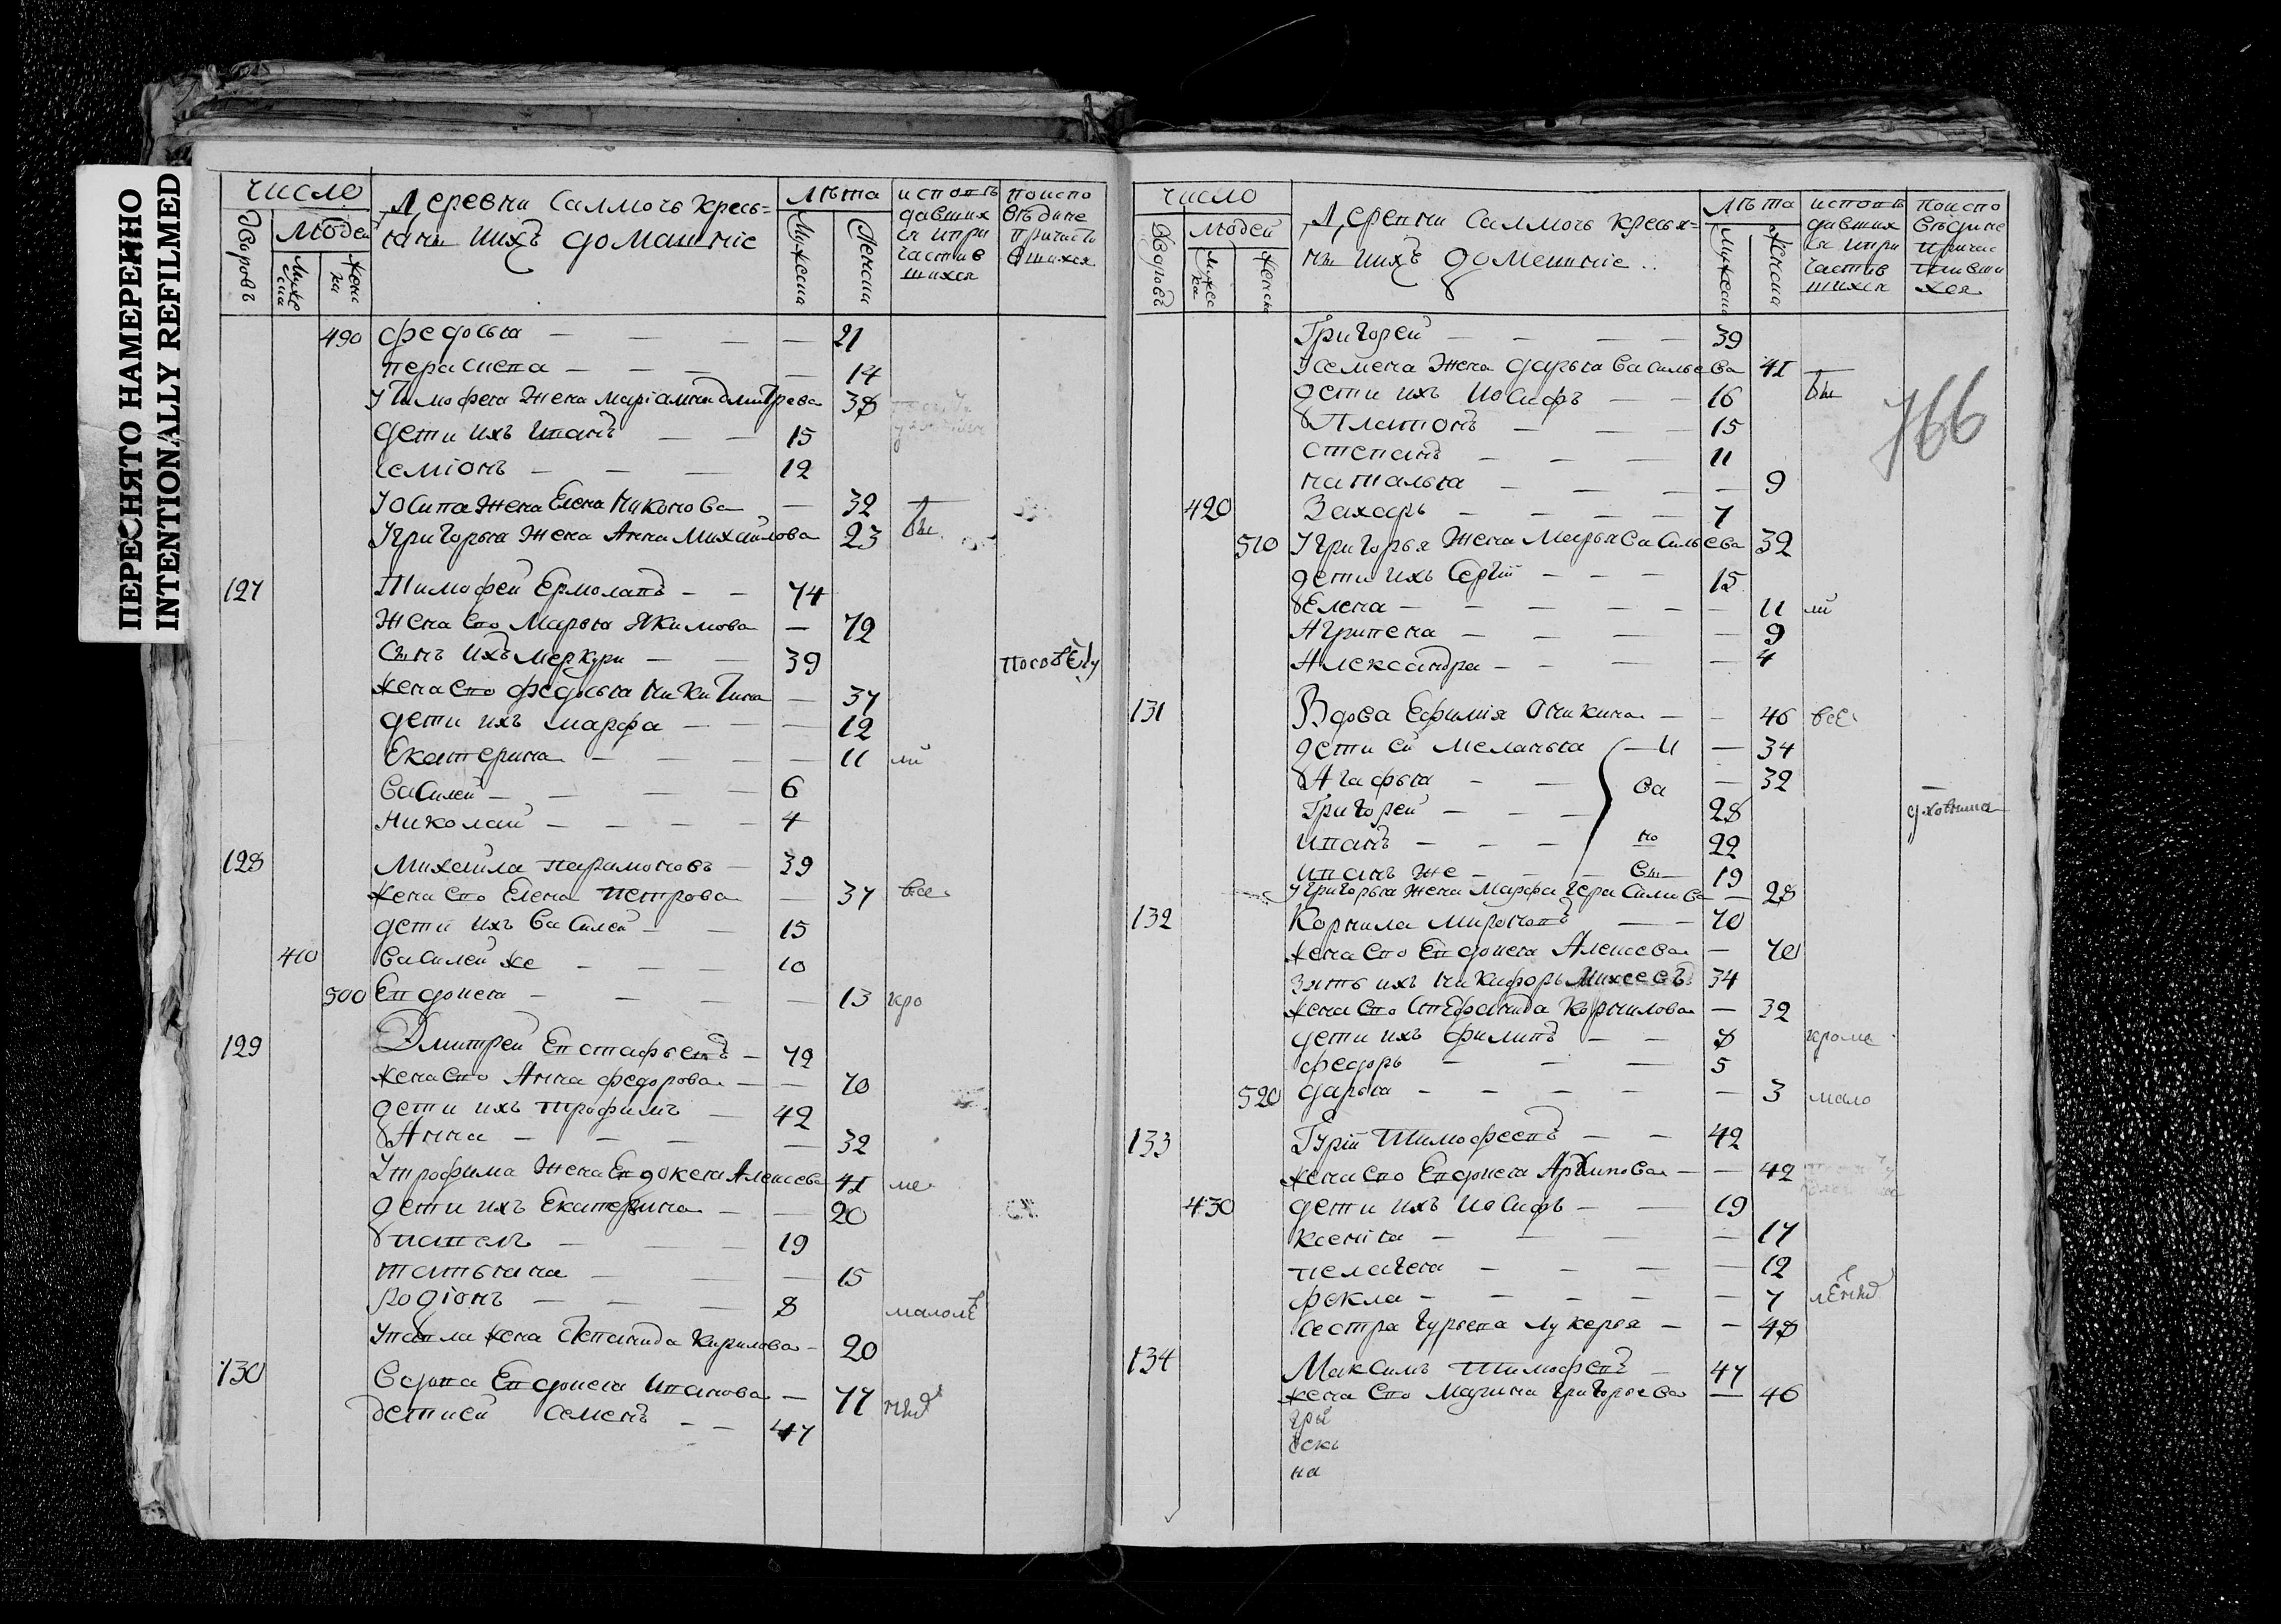 ПЕРЕСНЯТО НАМЕРЕННО
INTENTIONALLY REFILMED
число
Дворовъ
Людей
Мужеска
Женска
Деревни Саллмочь кресь=
яны ихъ домашніе
Лѣта
Мужеска
Женска
исповѣ
давших
ся и при
частив
шихся
поиспо
вѣдане
причасти
вшихся
490 федосья — — — — 21
параскева — — — — 14
У Тимофея жена маріамна дмитрева 38
дети ихъ иванъ — — 15
семіонъ — — — 12
У Осипа жена Елена Никонова — 32
У григорья жена Анна Михайлова 23 вы
127 Тимофей Ермолавъ — — 74
жена ево Марья Якимова — 72
сынъ ихъ меркури — — 39
жена ево федосья никитина — 37
дети ихъ марфа — — — 12
Екатерина — — — — 11 ли
василей — — — — 6
Николай — — — — 4
128 михайла парамоновъ — 39
жена ево Елена петрова — 37 все
дети ихъ василей — — 15
410 василей же — — — 10
500 Евдокея — — — — 13 кро
129 Дмитрей Евстафьевъ — 72
жена ево Анна федорова — — 70
дети ихъ трофимъ — 42
Анна — — — — 32
У трофима жена Евдокея Алексева 41 ме
дети ихъ Екатерина — — 20
павелъ — — 19
татьяна — — 15
родіонъ — — — 8 малолѣ
У павла жена степанида кирилова — 20
130 вдова Евдокея иванова — 77
дети ей семенъ — — 47
число
Дворовъ
Людей
Мужеска
Женска
Деревни Саллмочь кресья=
ны ихъ домашніе
Лѣта
Мужеска
Женска
исповѣ
давших
ся и при
частив
шихся
поиспо
вѣдане
причас
тивши
хся
Григорей — — — — 39
У семена жена дарья васильева 41
дети ихъ иосифъ — — 16 вы
766
Платонъ — — — 15
степанъ — — — 11
наталья — — — — 9
420 Захаръ — — — — 7
510 У григорья жена марья васильева 32
дети ихъ сергій — — — 15
Елена — — — — — — 11 ли
Агрипена — — — — 9
Александра — — — — 4
131 Вдова Ефимія Аникина — — 46 все
дети ей меланья — и — 34
Агафья — — ва — 32
Григорей — — — 28
иванъ — — — но 22
иванъ же — — вы 19
У григорья жена марфа герасимова — 28
132 Корнила миронавъ — — 70
жена ево Евдокея Алексева — 70
зять ихъ никифоръ михеевъ 34
жена ево стефанида корнилова — 32
дети ихъ филипъ — — 8 кроме
федоръ — — — 5
520 дарья — — — — — 3 мало
133 Гурій Тимофеевъ — — 42
жена ево Евдокея Архипова — — 42
430 дети ихъ иосифъ — — 19
ксенія — — — — 17
пелагея — — — — 12
фекла — — — — — 7
сестра гурьева лукерья — — 48
134 Максимъ Тимофевъ — 47
жена ево марина григорьева — 46